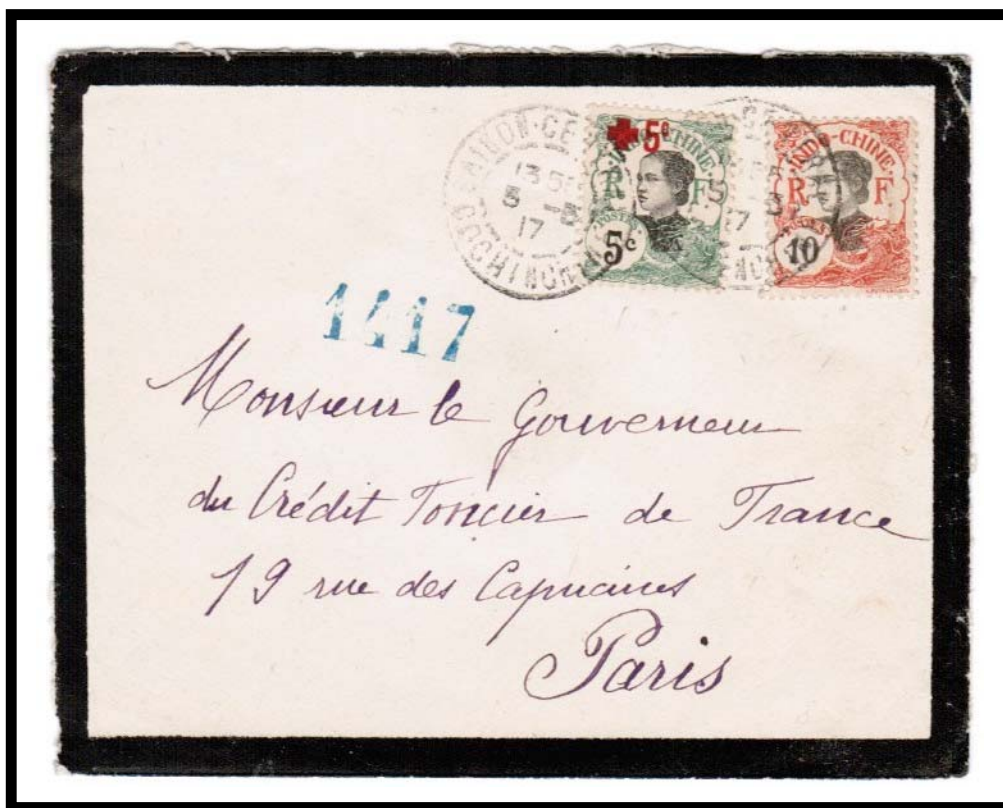 SAIGON-CE
13
5 -5
17
COCHINCH
5c
INDO-CHINE
R F
POSTES
5c
5
17
INDO-CHINE
R F
10
1417
Monsieur le Gouverneur
du Crédit Foncier de France
19 rue des Capucines
Paris